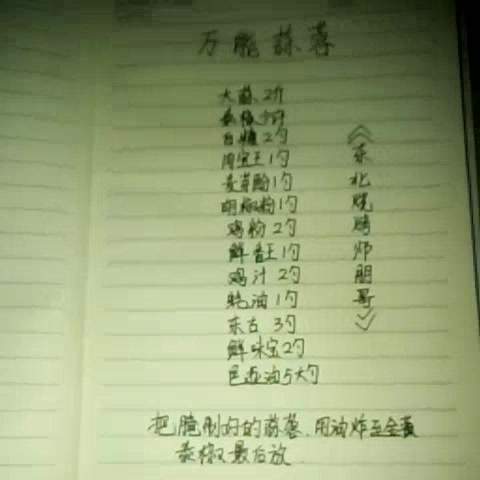 万能蒜蓉
大蒜 2斤
椒 少许
白糖 2勺
肉宝王 1勺
麦芽酚 1勺
胡椒粉 1勺
鸡粉 2勺
鲜香王 1勺
鸡汁 2勺
蚝油 1勺
东古 3勺
鲜味宝 2勺
色拉油 5大勺
《东北烧烤师朋哥》
把腌制好的蒜蓉.用油炸至金黄
椒最后放